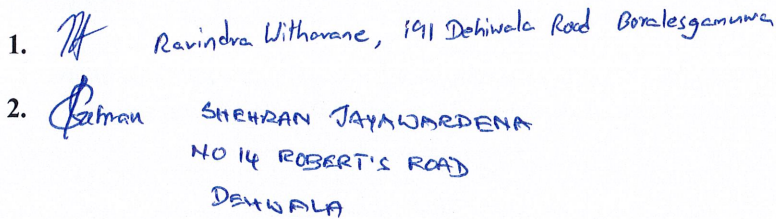 1. Ravindra Withorane, 191 Dehiwala Road Boralesgamuwa
2. SHEHRAN JAYAWARDENA
NO 14 ROBERT'S ROAD
DEHIWALA